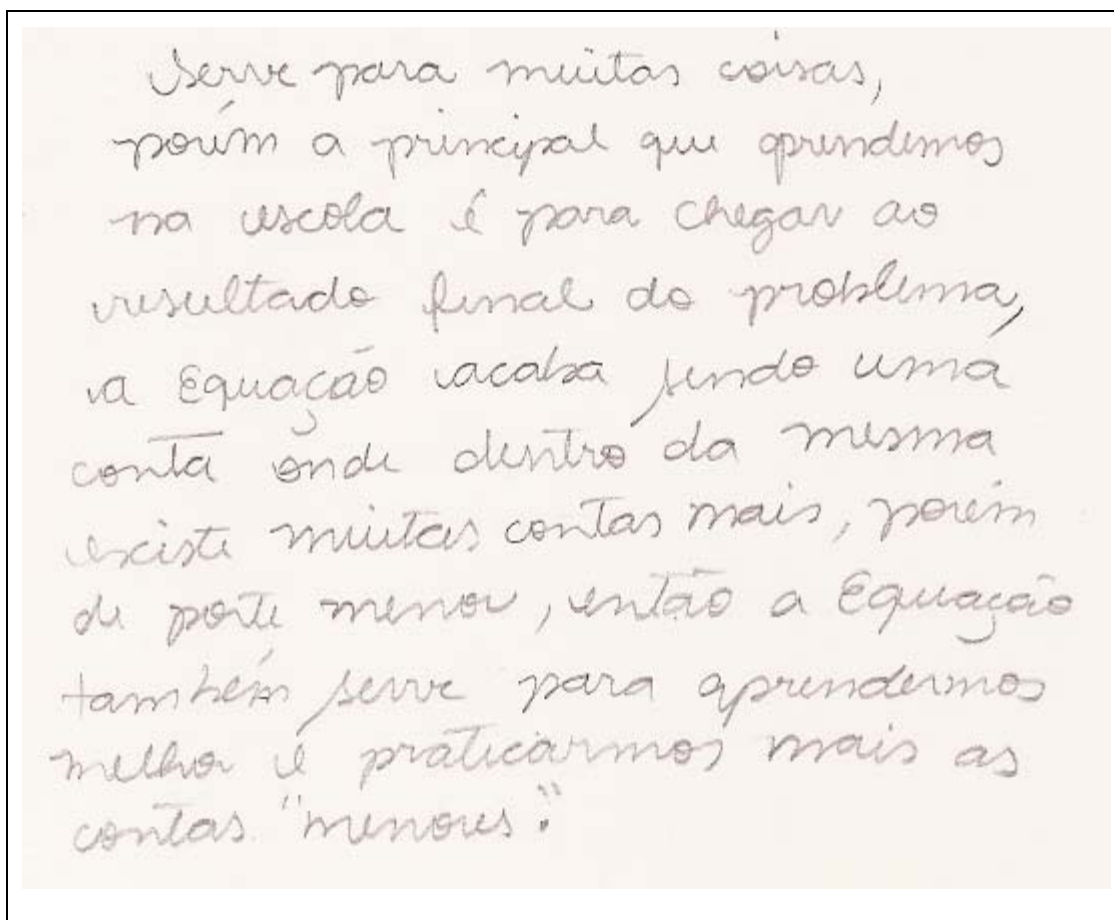 Serve para muitas coisas,
porém a principal que aprendemos
na escola é para chegar ao
resultado final do problema,
a Equação acaba sendo uma
conta onde dentro da mesma
existe muitas contas mais, porém
de porte menor, então a Equação
também serve para aprendermos
melhor e praticarmos mais as
contas "menores".